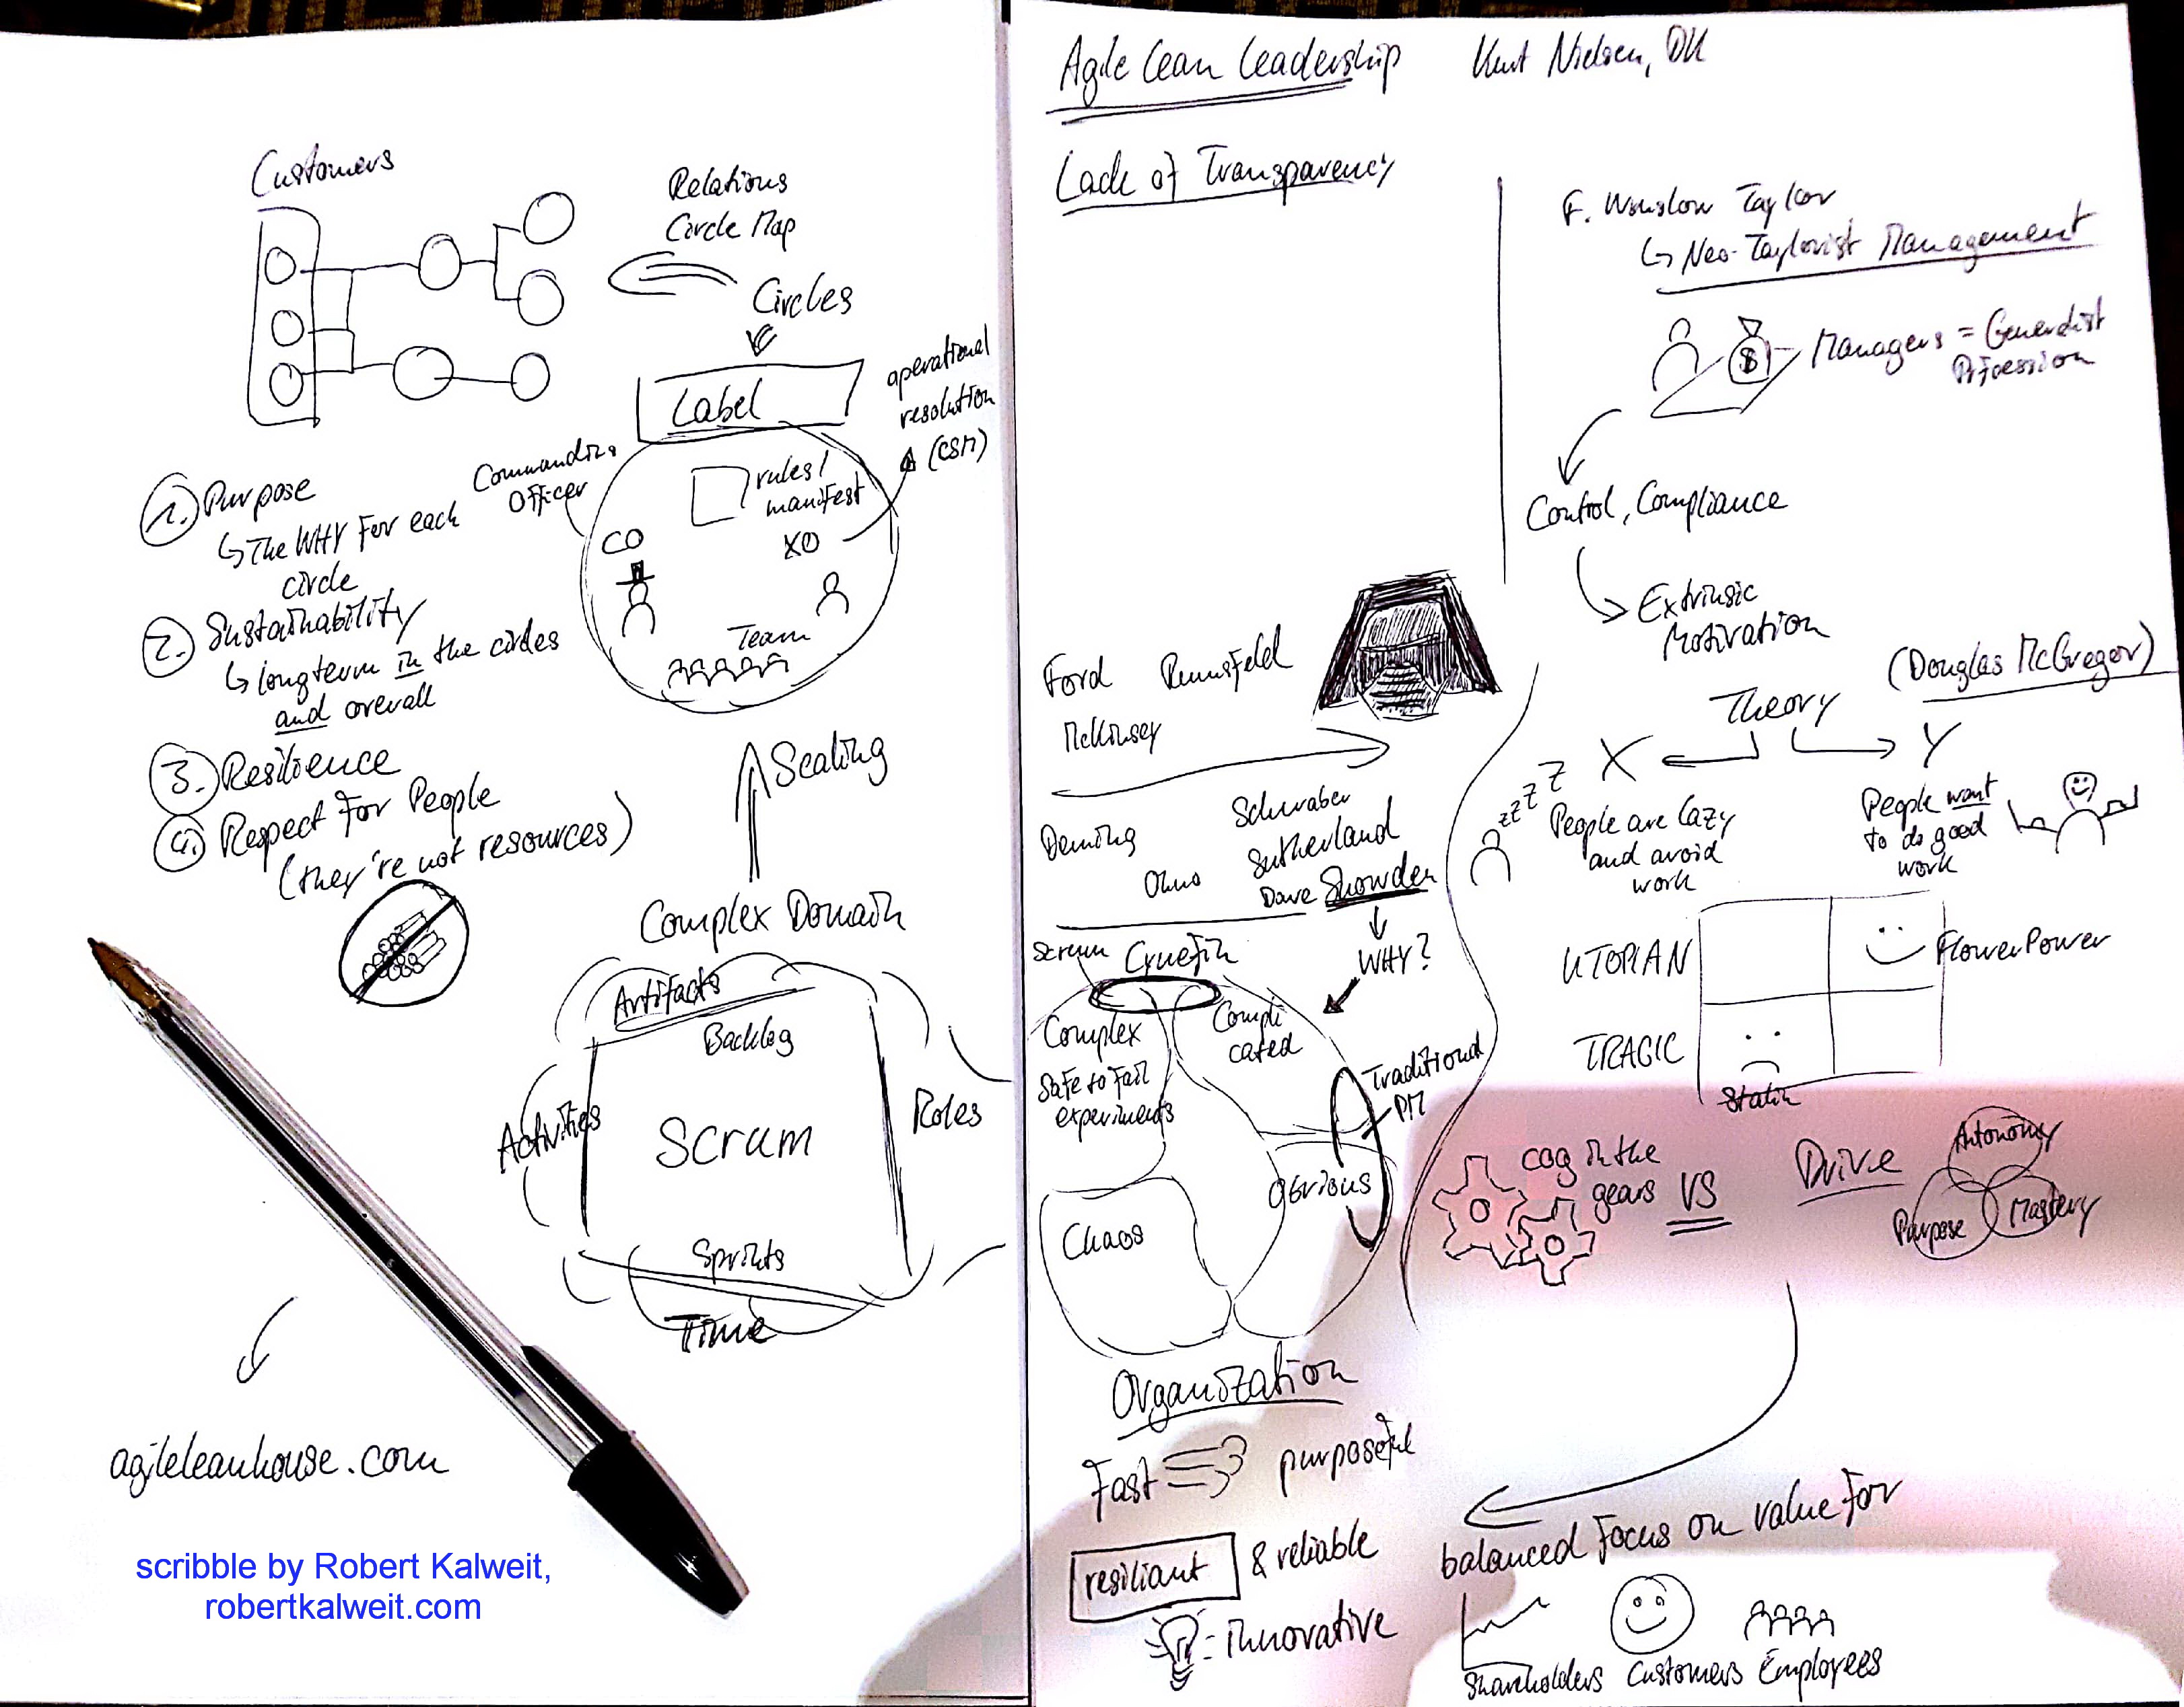 Customers
Relations
Circle Map
Circles
Label
operational
resolution
(CSM)
Commanding
Officer
rules/
manifest
CO
XO
Team
1. Purpose
↳ The WHY For each
circle
2. Sustainability
↳ longterm in the circles
and overall
3. Resilience
4. Respect For People
(they're not resources)
Scaling
Complex Domain
Artifacts
Backlog
Activities
Scrum
Roles
Sprints
Time
agileleanhouse.com
scribble by Robert Kalweit,
robertkalweit.com
Agile Lean Leadership Kurt Nielsen, DK
Lack of Transparency
F. Winslow Taylor
↳ Neo-Taylorist Management
$
Managers = Generalist
Profession
Control, Compliance
Extrinsic
Motivation
Ford Rumsfeld
McKinsey
Deming
Ohno
Schwaber
Sutherland
Dave Snowden
WHY?
Scrum
Cynefin
Complex
Safe to Fail
experiments
Compli
cated
Traditional
PM
Obvious
Chaos
(Douglas McGregor)
Theory
X
Y
zzzZZ
People are lazy
and avoid
work
People want
to do good
work
UTOPIAN
FlowerPower
TRAGIC
Stalin
cog in the
gears
VS
Drive
Autonomy
Purpose
Mastery
Organization
Fast
purposeful
resiliant & reliable
Innovative
balanced Focus on value For
Shareholders Customers Employees